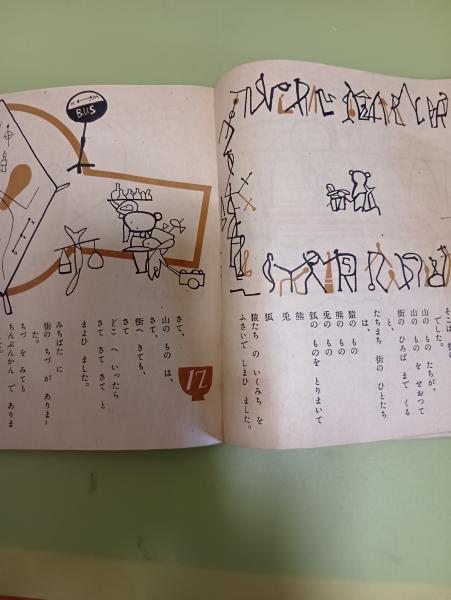 でした。
山の もの たちが、
山の もの を せおつて
街の ひろば まで くる
と、
たちまち 街の ひとたち
は、
猿の もの
熊の もの
兎の もの
狐の ものを とりまいて
熊
兎
狐
猿たち の いくみち を
ふさいで しまひ ました。
17
さて、
山の もの は、
さて、
街へ きても、
さて
どこ へ いつたら
さて さて さて と
まよひ ました。
みちばた に
街の ちづ が ありまー
た。
ちづ を みても
ちんぷんかん で ありま
BUS